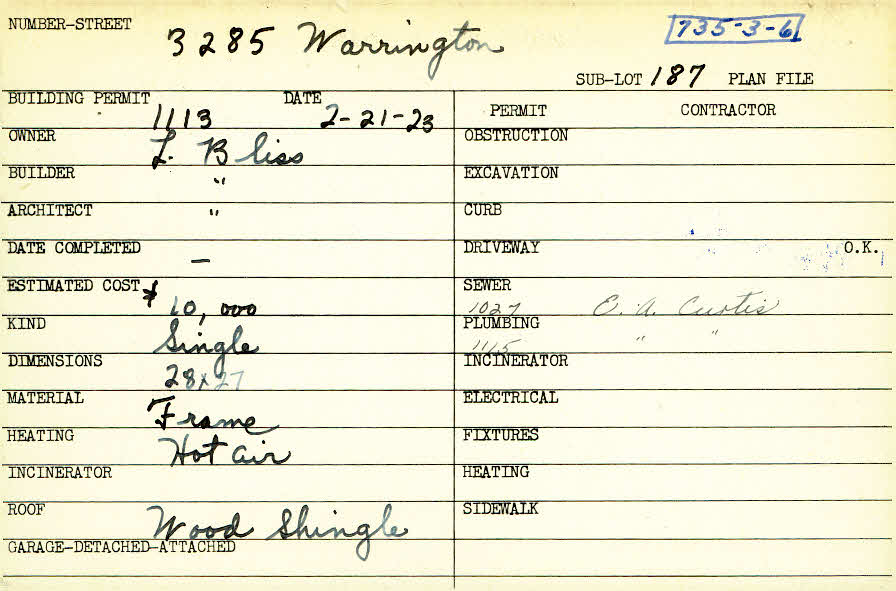 NUMBER-STREET 3285 Warrington 735-3-6
SUB-LOT 187 PLAN FILE
BUILDING PERMIT 1113 DATE 2-21-23
OWNER L. Bliss
BUILDER "
ARCHITECT "
DATE COMPLETED –
ESTIMATED COST $10,000
KIND Single
DIMENSIONS 28x27
MATERIAL Frame
HEATING Hot air
INCINERATOR
ROOF Wood Shingle
GARAGE-DETACHED-ATTACHED
PERMIT CONTRACTOR
OBSTRUCTION
EXCAVATION
CURB
DRIVEWAY O.K.
SEWER 1027 E. A. Curtis
PLUMBING 1115 " "
INCINERATOR
ELECTRICAL
FIXTURES
HEATING
SIDEWALK